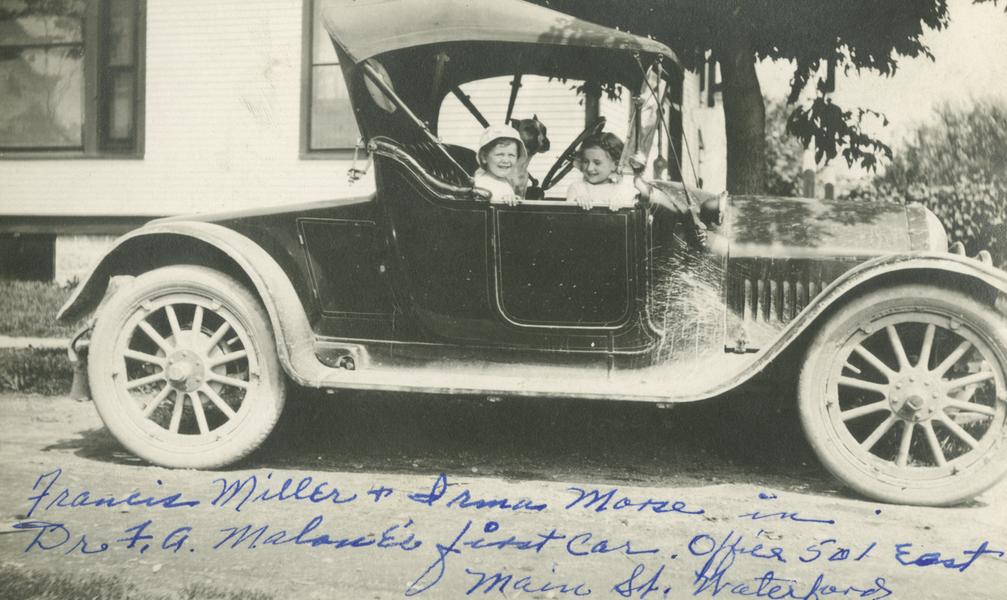 Francis Miller + Irma Morse in
Dr. F. A. Malone's first car. Office 501 East
Main St. Waterford